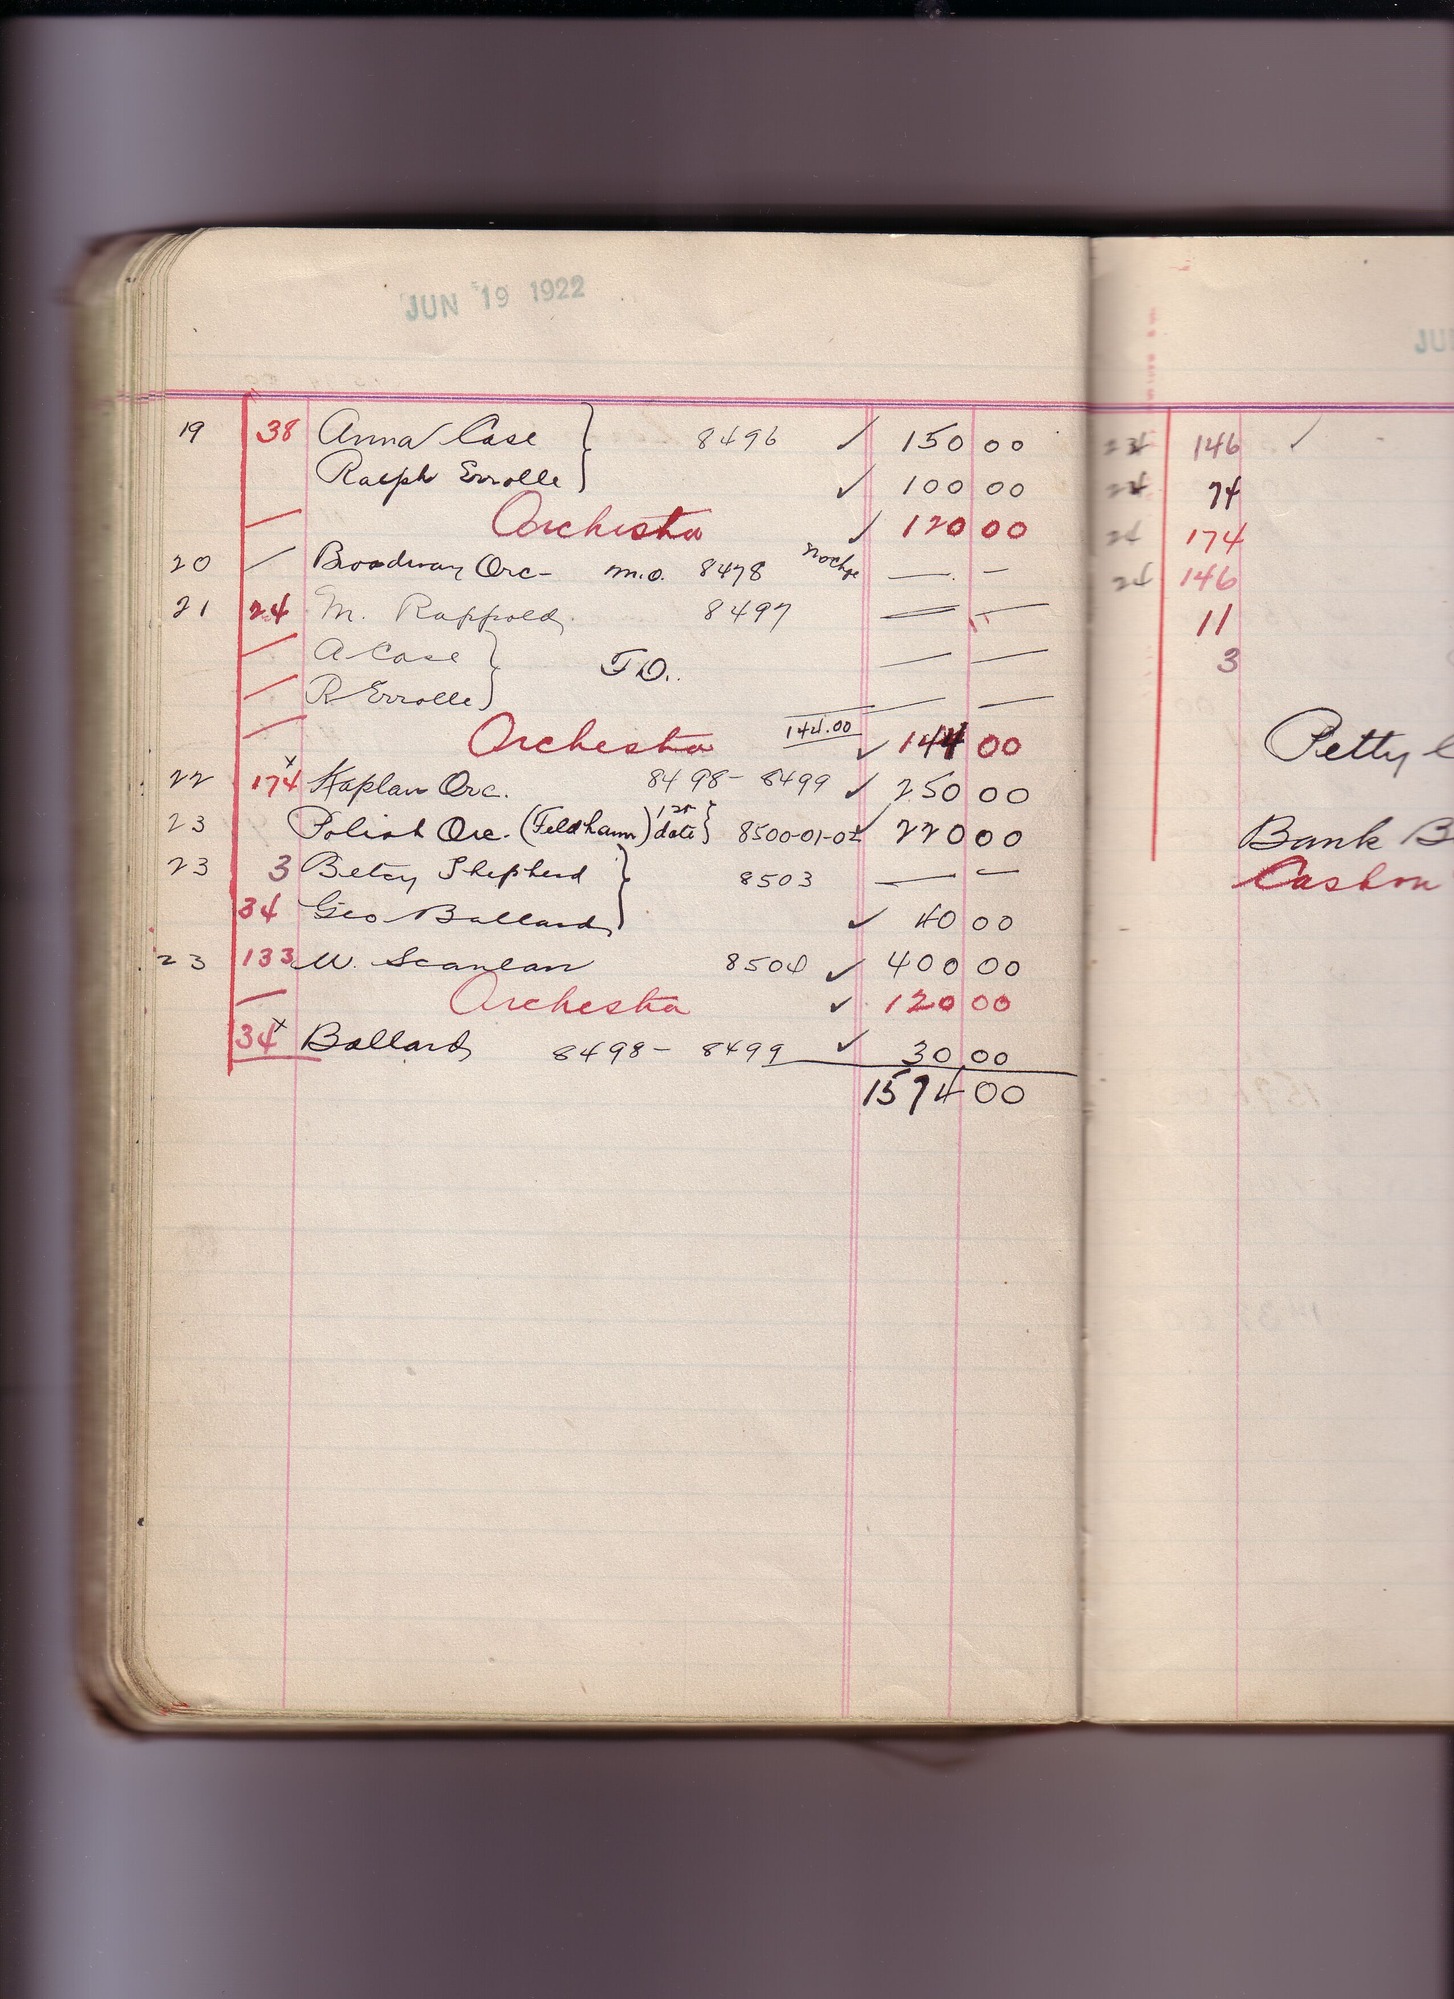 JUN 19 1922
19 38 Anna Case } 8496 ✓ 150 00
Ralph Errolle } ✓ 100 00
— Orchestra ✓ 120 00
20 — Broadway Orc - m.o. 8478 no chge — —
21 24 M. Rappold, 8497 — —
— A Case } T.O. — —
— R Errolle } — —
— Orchestra 144.00 ✓ 144 00
22 174 x Kaplan Orc. 8498 - 8499 ✓ 250 00
23 Polish Orc. (Feldhamn) 1st date } 8500-01-02 ✓ 220 00
23 3 Betsy Shepherd } 8503 — —
34 Geo Ballard, } ✓ 40 00
23 133 W. Scanlan 8504 ✓ 400 00
— Orchestra ✓ 120 00
34 x Ballard, 8498 - 8499 ✓ 30 00
1574 00
JU
24 146 ✓
24 74
24 174
24 146
11
3
Petty
Bank B
Cash on